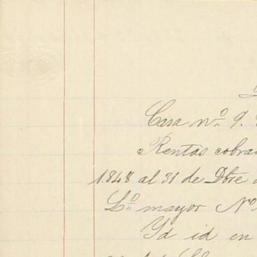 Casa nº 9.
Rentas cobra
1848 al 31 de Dbre
Lº mayor Nº
Id id en